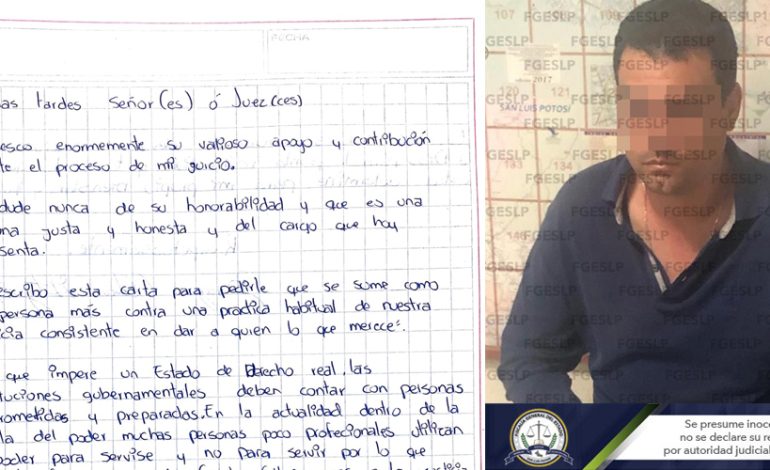 FECHA
as tardes señor(es) ó Juez(ces)
esco enormemente su valioso apoyo y contribución
te el proceso de mi guicio.
dude nunca de su honorabilidad y que es una
na justa y honesta y del cargo que hoy
senta.
escribo esta carta para pedirle que se sume como
persona más contra una practica habitual de nuestra
icia consistente en dar a quien lo que merece".
que impere un Estado de Derecho real, las
tuciones gubernamentales deben contar con personas
rometidas y preparadas. En la actualidad dentro de la
la del poder muchas personas poco profecionales utilican
poder para servise y no para servir por lo que
107
109
110
FGESLP
GESLP
FGESLP
FGESLP
2017
120
121
SAN LUIS POTOSÍ
GESLP
FGESLP
133
134
GESLP
FGESLP
FGESLP
146
GESLP
FGESLP
FGESLP
GESLP
FGESLP
FGESLP
FISCALÍA GENERAL DEL ESTADO
Se presume inoce
no se declare su re
por autoridad judicial